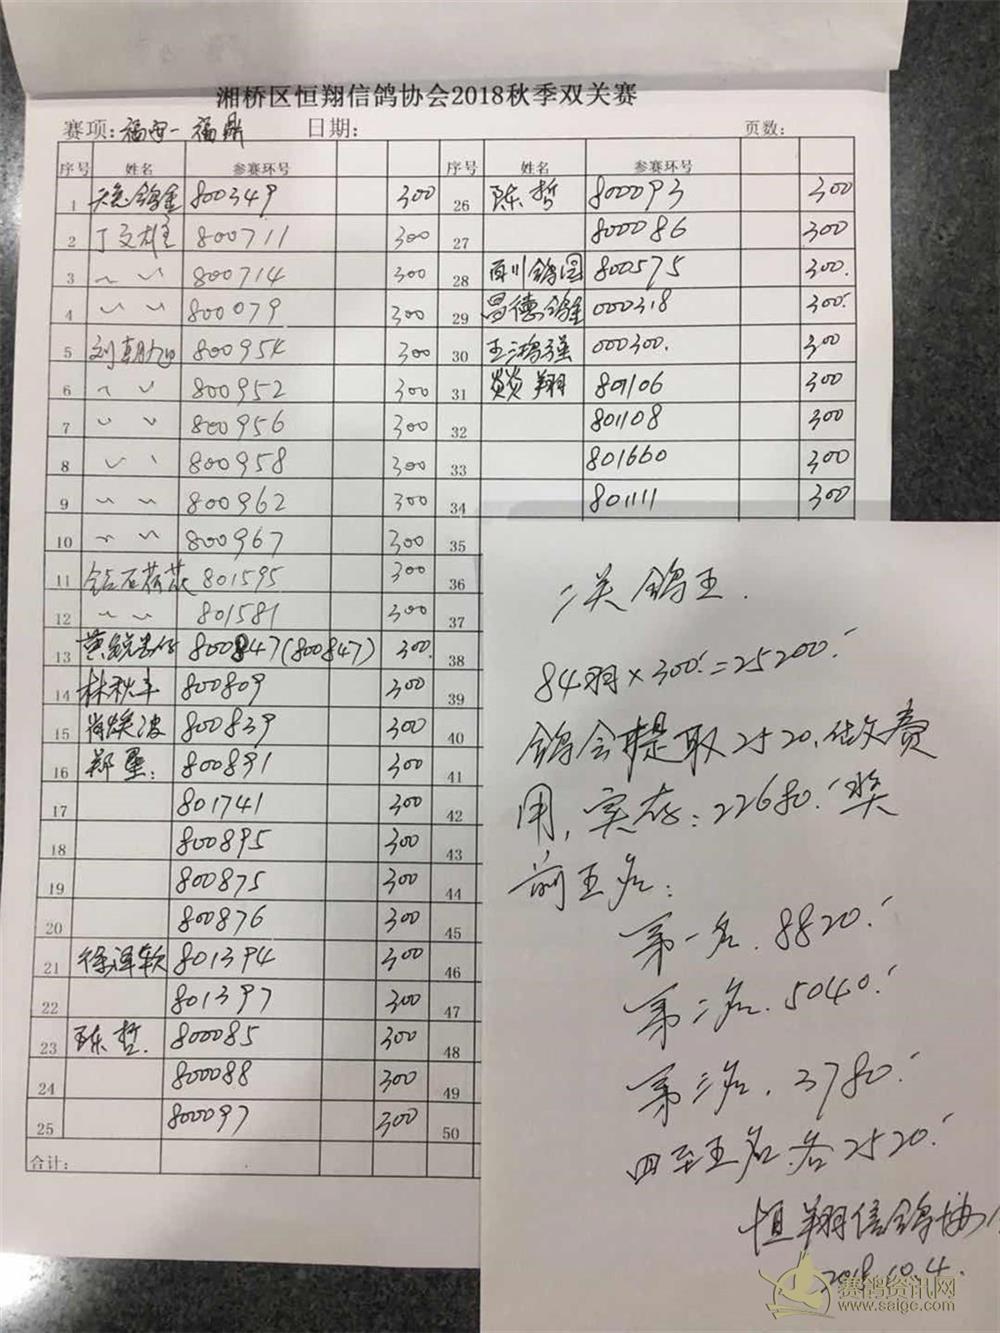 湘桥区恒翔信鸽协会2018秋季双关赛
赛项：福安一福鼎 日期： 页数：
序号 姓名 参赛环号 序号 姓名 参赛环号
1 800349 300 26 陈哲 800093 300
2 丁文雄 800711 300 27 800086 300
3 〃 〃 800714 300 28 百川鸽园 800575 300.
4 〃 〃 800079 300 29 昌德鸽舍 000318 300.
5 刘朝旭 800954 300 30 王鸿强 000300. 300
6 〃 〃 800952 300 31 焱焱翔 801106 300
7 〃 〃 800956 300 32 801108 300
8 〃 〃 800958 300 33 801660 300
9 〃 〃 800962 300 34 801111 300
10 〃 〃 800967 300 35
11 钻石 801595 300 36
12 〃 〃 801581 300 37
13 800847(800847) 300. 38
14 林秋丰 800809 300 39
15 肖焕波 800839 300 40
16 郑重: 800891 300 41
17 801741 300 42
18 800895 300 43
19 800875 300 44
20 800876 300 45
21 徐泽钦 801394 300 46
22 801397 300 47
23 陈哲. 800085 300 48
24 800088 300 49
25 800097 300 50
合计：
二关鸽王.
84羽×300.=25200.
鸽会提取2520.做费
用,实存:22680.奖
前五名:
第一名.8820.
第二名.5040.
第三名.3780.
四至五名.各2520.
恒翔信鸽协
2018.10.4.
赛鸽资讯网
www.saigc.com